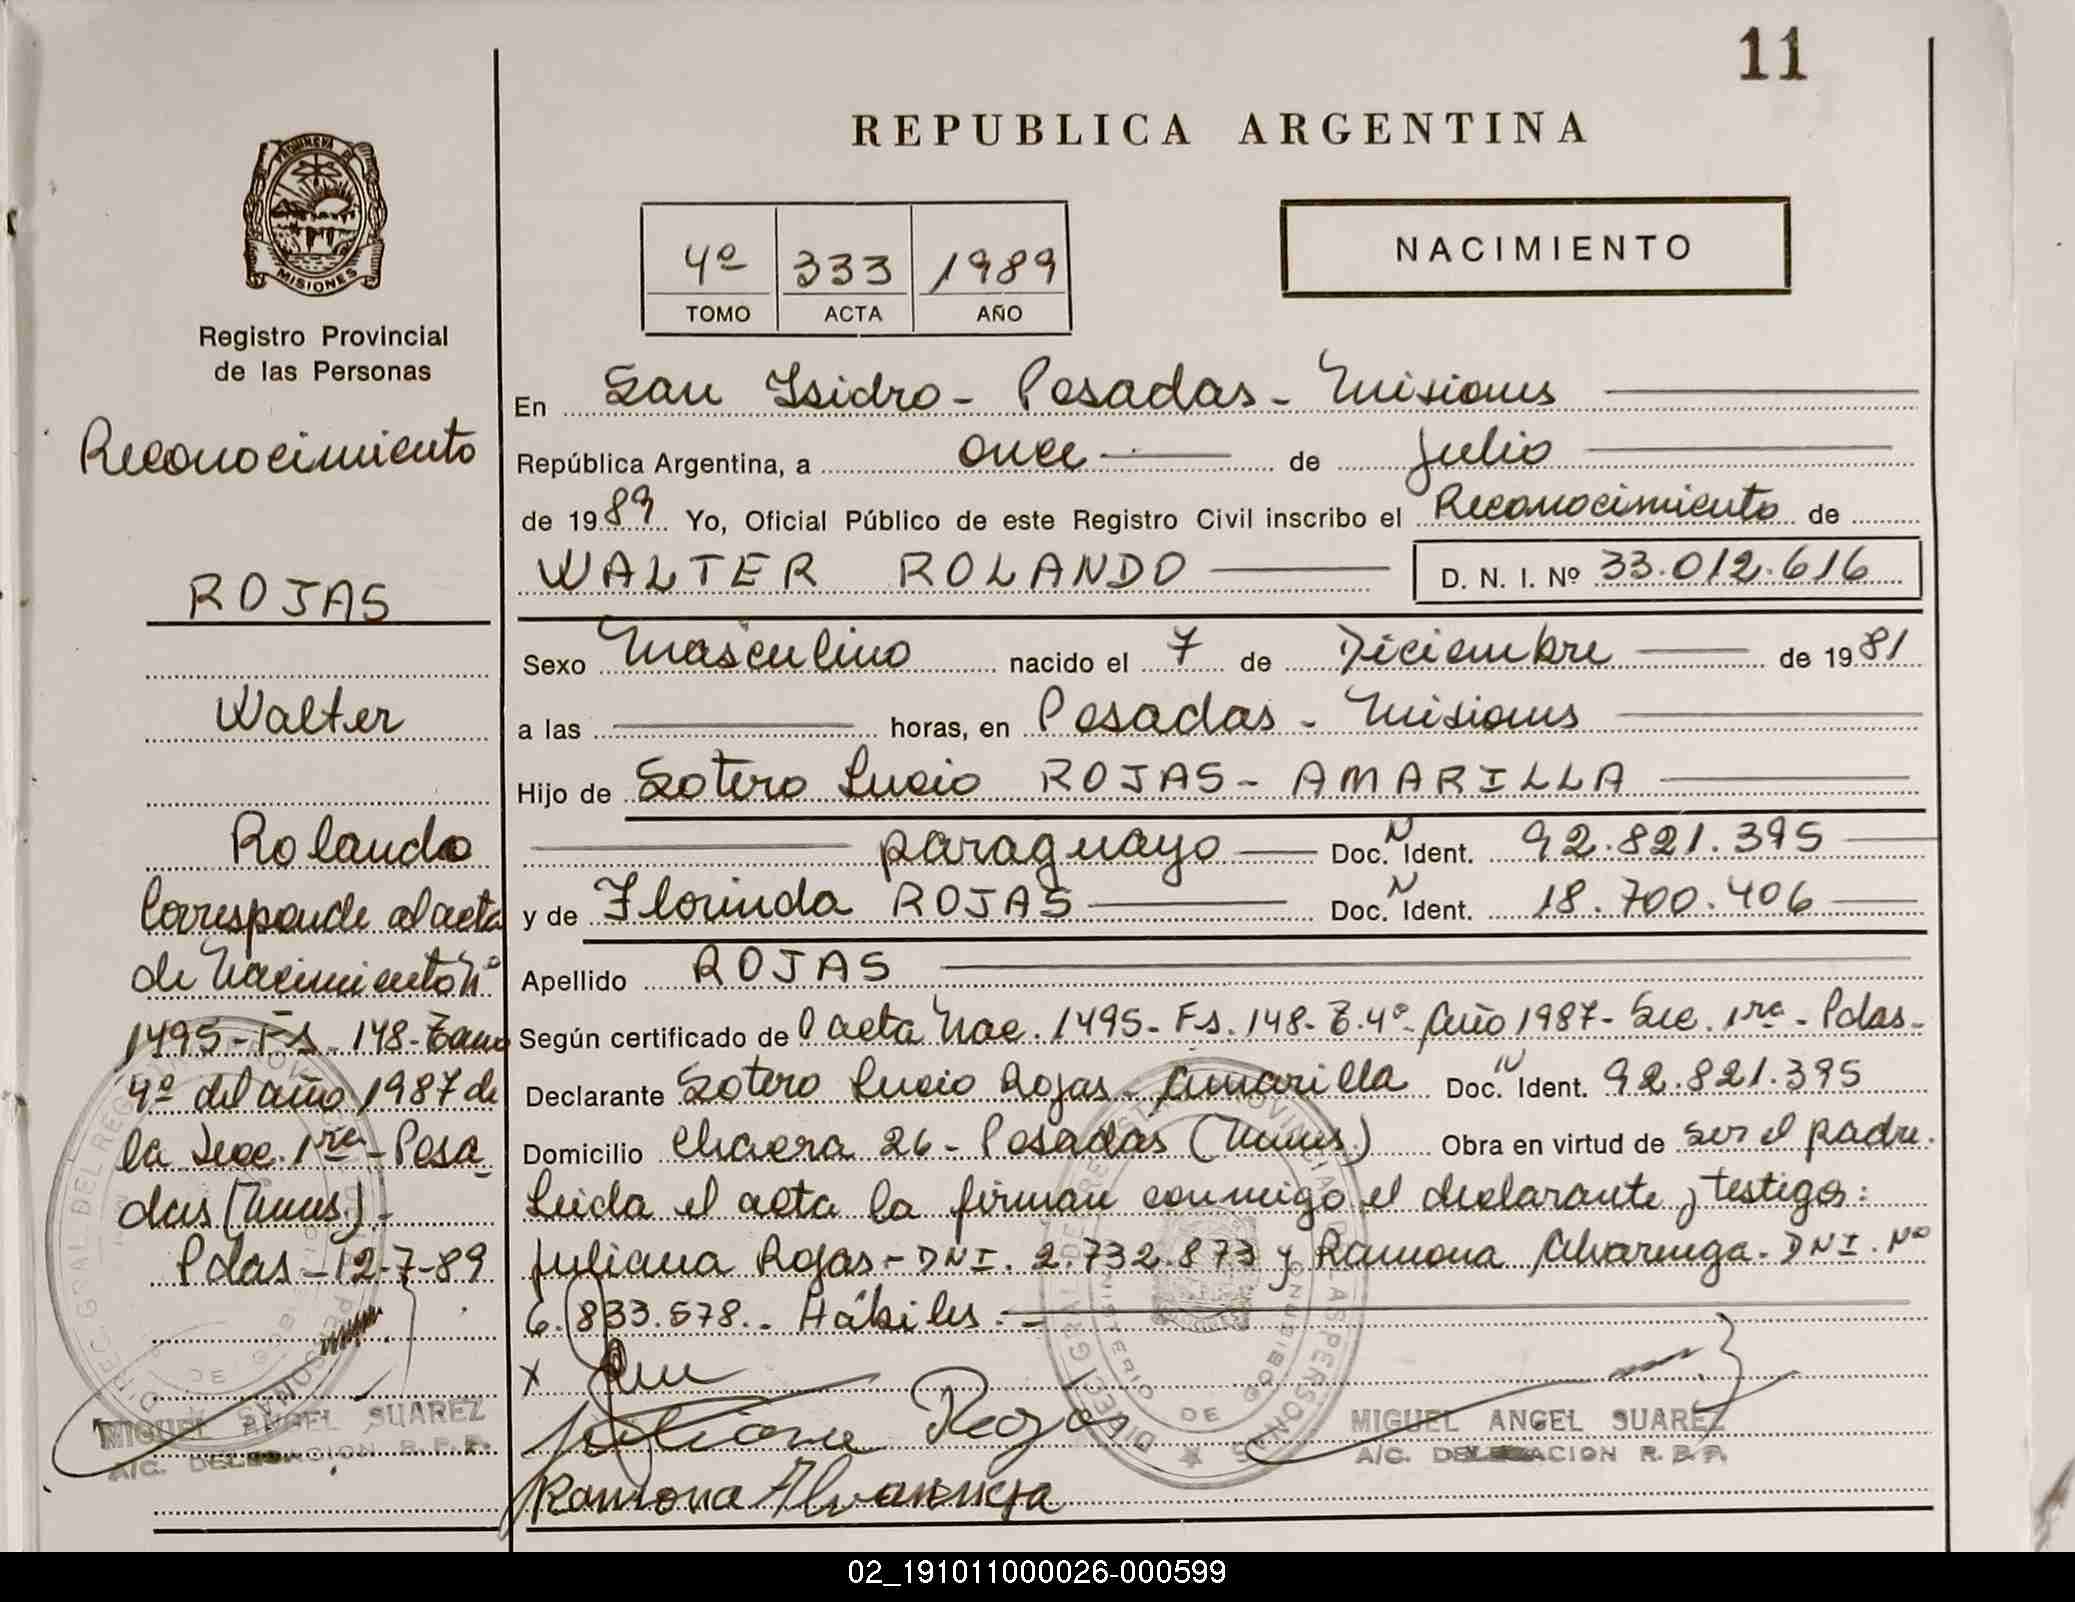 11
REPUBLICA ARGENTINA
PROVINCIA DE
MISIONES
Registro Provincial
de las Personas
4º 333 1989
TOMO ACTA AÑO
NACIMIENTO
Reconocimiento
ROJAS
Walter
Rolando
Corresponde al acta
de Nacimiento Nº
1495-Fs. 148-Tomo
4º del año 1987 de
la Secc. 1ra-Posa
das (Mnes.)-
Pdas-12-7-89
MIGUEL ANGEL SUAREZ
A/C. DELEGACION R.P.P.
En San Isidro - Posadas - Misiones
República Argentina, a once de Julio
de 1989 Yo, Oficial Público de este Registro Civil inscribo el Reconocimiento de
WALTER ROLANDO D. N. I. Nº 33.012.616
Sexo Masculino nacido el 7 de Diciembre de 1981
a las horas, en Posadas - Misiones
Hijo de Sotero Lucio ROJAS - AMARILLA
paraguayo Doc. N Ident. 92.821.395
y de Florinda ROJAS Doc. N Ident. 18.700.406
Apellido ROJAS
Según certificado de acta Nac. 1495- Fs. 148- T. 4º- Año 1987- Sec. 1ra - Pdas-
Declarante Sotero Lucio Rojas - Amarilla Doc. N Ident. 92.821.395
Domicilio Chacra 26 - Posadas (Mnes.) Obra en virtud de ser el padre.
Leida el acta la firman conmigo el declarante y testigos:
Juliana Rojas - DNI. 2.732.873 y Ramona Alvarenga. DNI. Nº
6.833.578.. Hábiles.=
x
Juliana Rojas
Ramona Alvarenga
MIGUEL ANGEL SUAREZ
A/C. DELEGACION R.P.P.
02_191011000026-000599